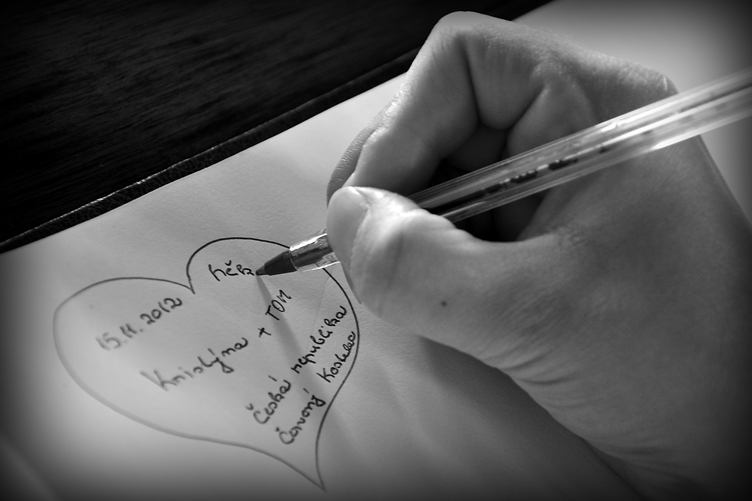 15.11.2012
Kristýna + TOM
Česká republika
Červený Kostelec